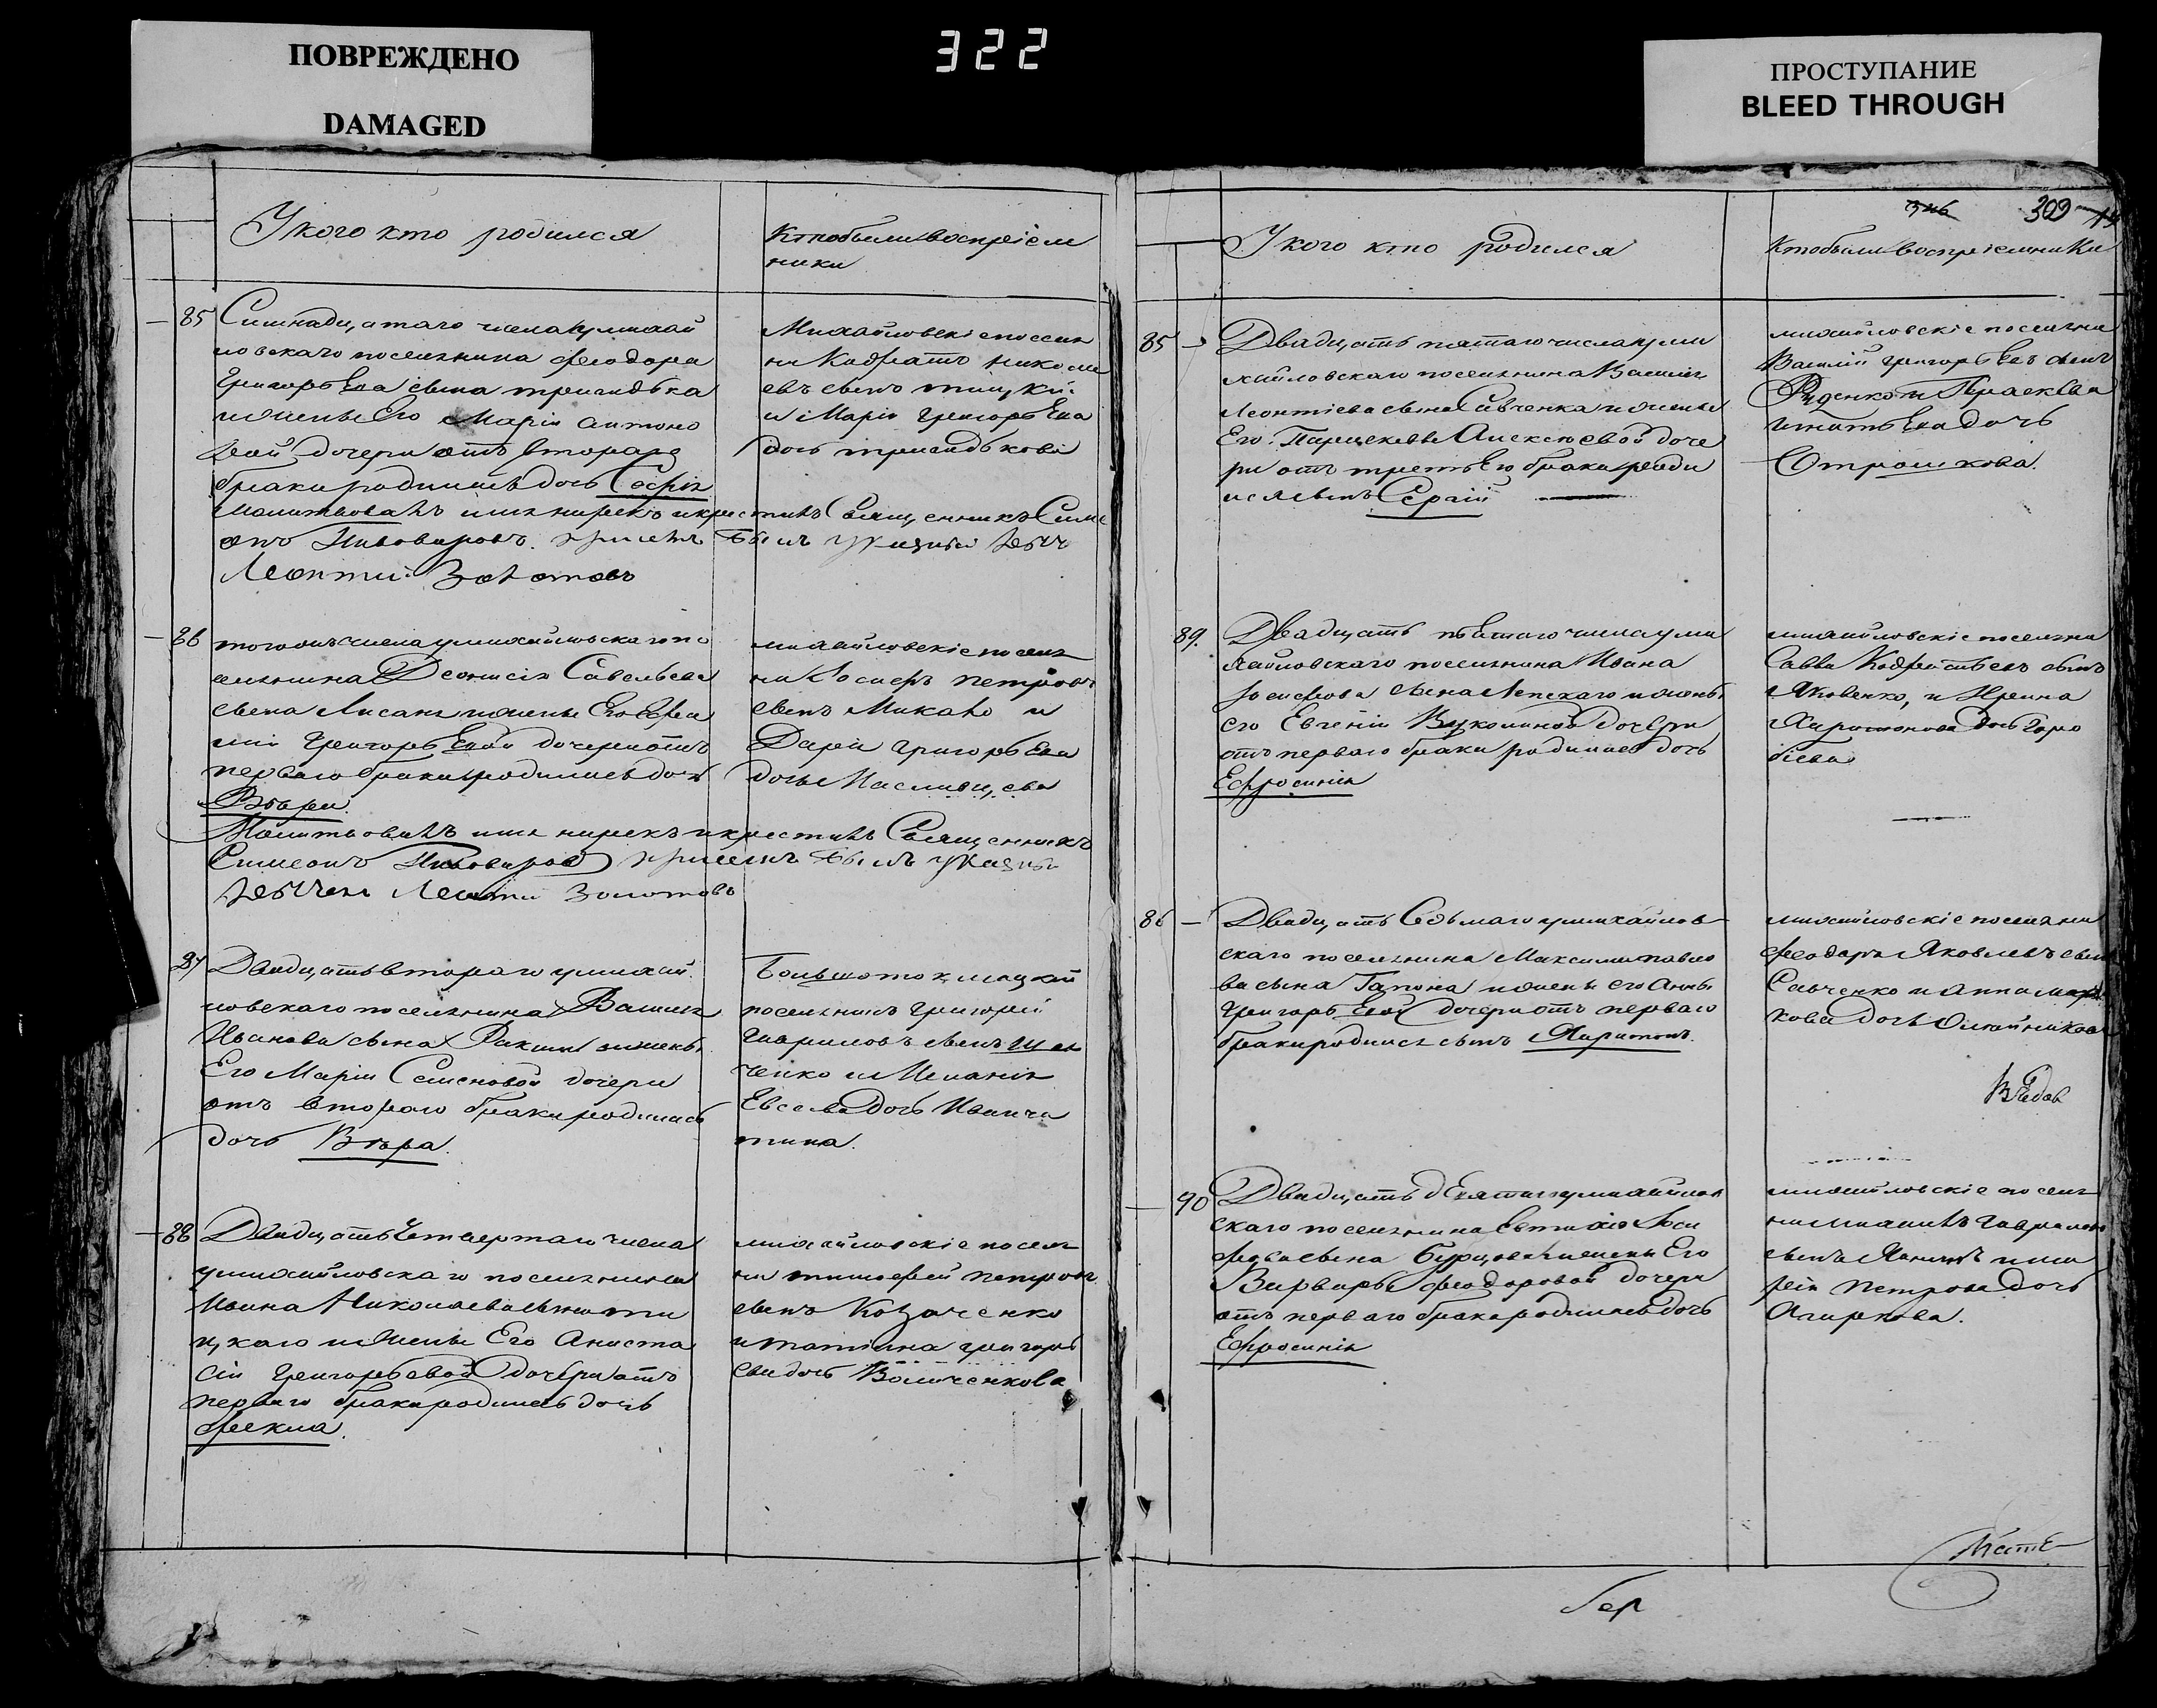 ПОВРЕЖДЕНО
DAMAGED
322
ПРОСТУПАНИЕ
BLEED THROUGH
У кого кто родился
Кто были воспріем
ники
85 Симнадцатаго числа у михай
ловскаго поселянина Феодора
Григорьева сына
и жены Его Маріи Антоно
вой дочери отъ втораго
брака родилась дочь Софія
Молитвовалъ имя нарекъ и крестилъ Священникъ Симе
онъ Пивоваровъ. при семъ былъ указный дьячъ
Леонтій Золотовъ
Михайловскіе поселя
не Кодратъ Никола
евъ сынъ тицкій
и Марія Григорьева
дочь
86 тогожъ числа у михайловскаго по
селянина Деонисія Савельева
сына Лисань и жены Его Евфи
міи Григорьевой дочери отъ
перваго брака родилась дочь
Варвара
Молитвовалъ имя нарекъ и крестилъ Священникъ
Симеонъ Пивоваровъ при семъ былъ указный
Леонтій Золотовъ
михайловскіе поселя
не Іосифъ Петровъ
сынъ Микало и
Дарія Григорьева
дочь
87 Двадцать втораго у михай
ловскаго поселянина Василія
Иванова сына и жены
Его Маріи Семеновой дочери
отъ втораго брака родилась
дочь Вѣра.
Большотокмацкій
поселянинъ Григорій
Гавриловъ сынъ Шев
ченко и Меланія
дочь Иванча
тина.
88 Двадцать Четвертаго числа
у михайловскаго поселянина
Ивана Николаева сына ти
цкаго и жены Его Анаста
сіи Григорьевой дочери отъ
перваго брака родилась дочь
Фекла.
михайловскіе поселя
не тимофей петровъ
сынъ Козаченко
и татіана григорь
ева дочь
309
У кого кто родился
Кто были воспріемники
85 Двадцать пятаго числа у ми
хайловскаго поселянина Василія
Леонтіева сына Савченка и жены
Его Параскевы Алексеевой доче
ри отъ третьего брака роди
лся сынъ Сергій
михайловскіе поселяне
Василій Григорьевъ сынъ
Руденко и Параскева
Игнатьева дочь
Страшкова.
89. Двадцать пятаго числа у ми
хайловскаго поселянина Ивана
Іосифова сына Лепскаго и жены
его Евгеніи Вуколиной дочери
отъ перваго брака родилась дочь
Ефросинія
михайловскіе поселяне
Савва Кодратьевъ сынъ
Яковенко, и Ирина
Харитонова дочь Горо
бѣева
86 Двадцать Седьмаго у михайлов
скаго поселянина Максима павло
ва сына Гапона и жены его Анны
Григорьевой дочери отъ перваго
брака родился сынъ Харитонъ.
михайловскіе поселяне
Феодоръ Яковлевъ сынъ
Савченко и Анна Мар
кова дочь Олейникова
90 Двадцать девятаго у михайлов
скаго поселянина Евтихія Іоси
фова сына и жены Его
Варвары Феодоровой дочери
отъ перваго брака родилась дочь
Ефросинія
михайловскіе поселя
не михаилъ гаврилов
сынъ и ма
рія Петрова дочь